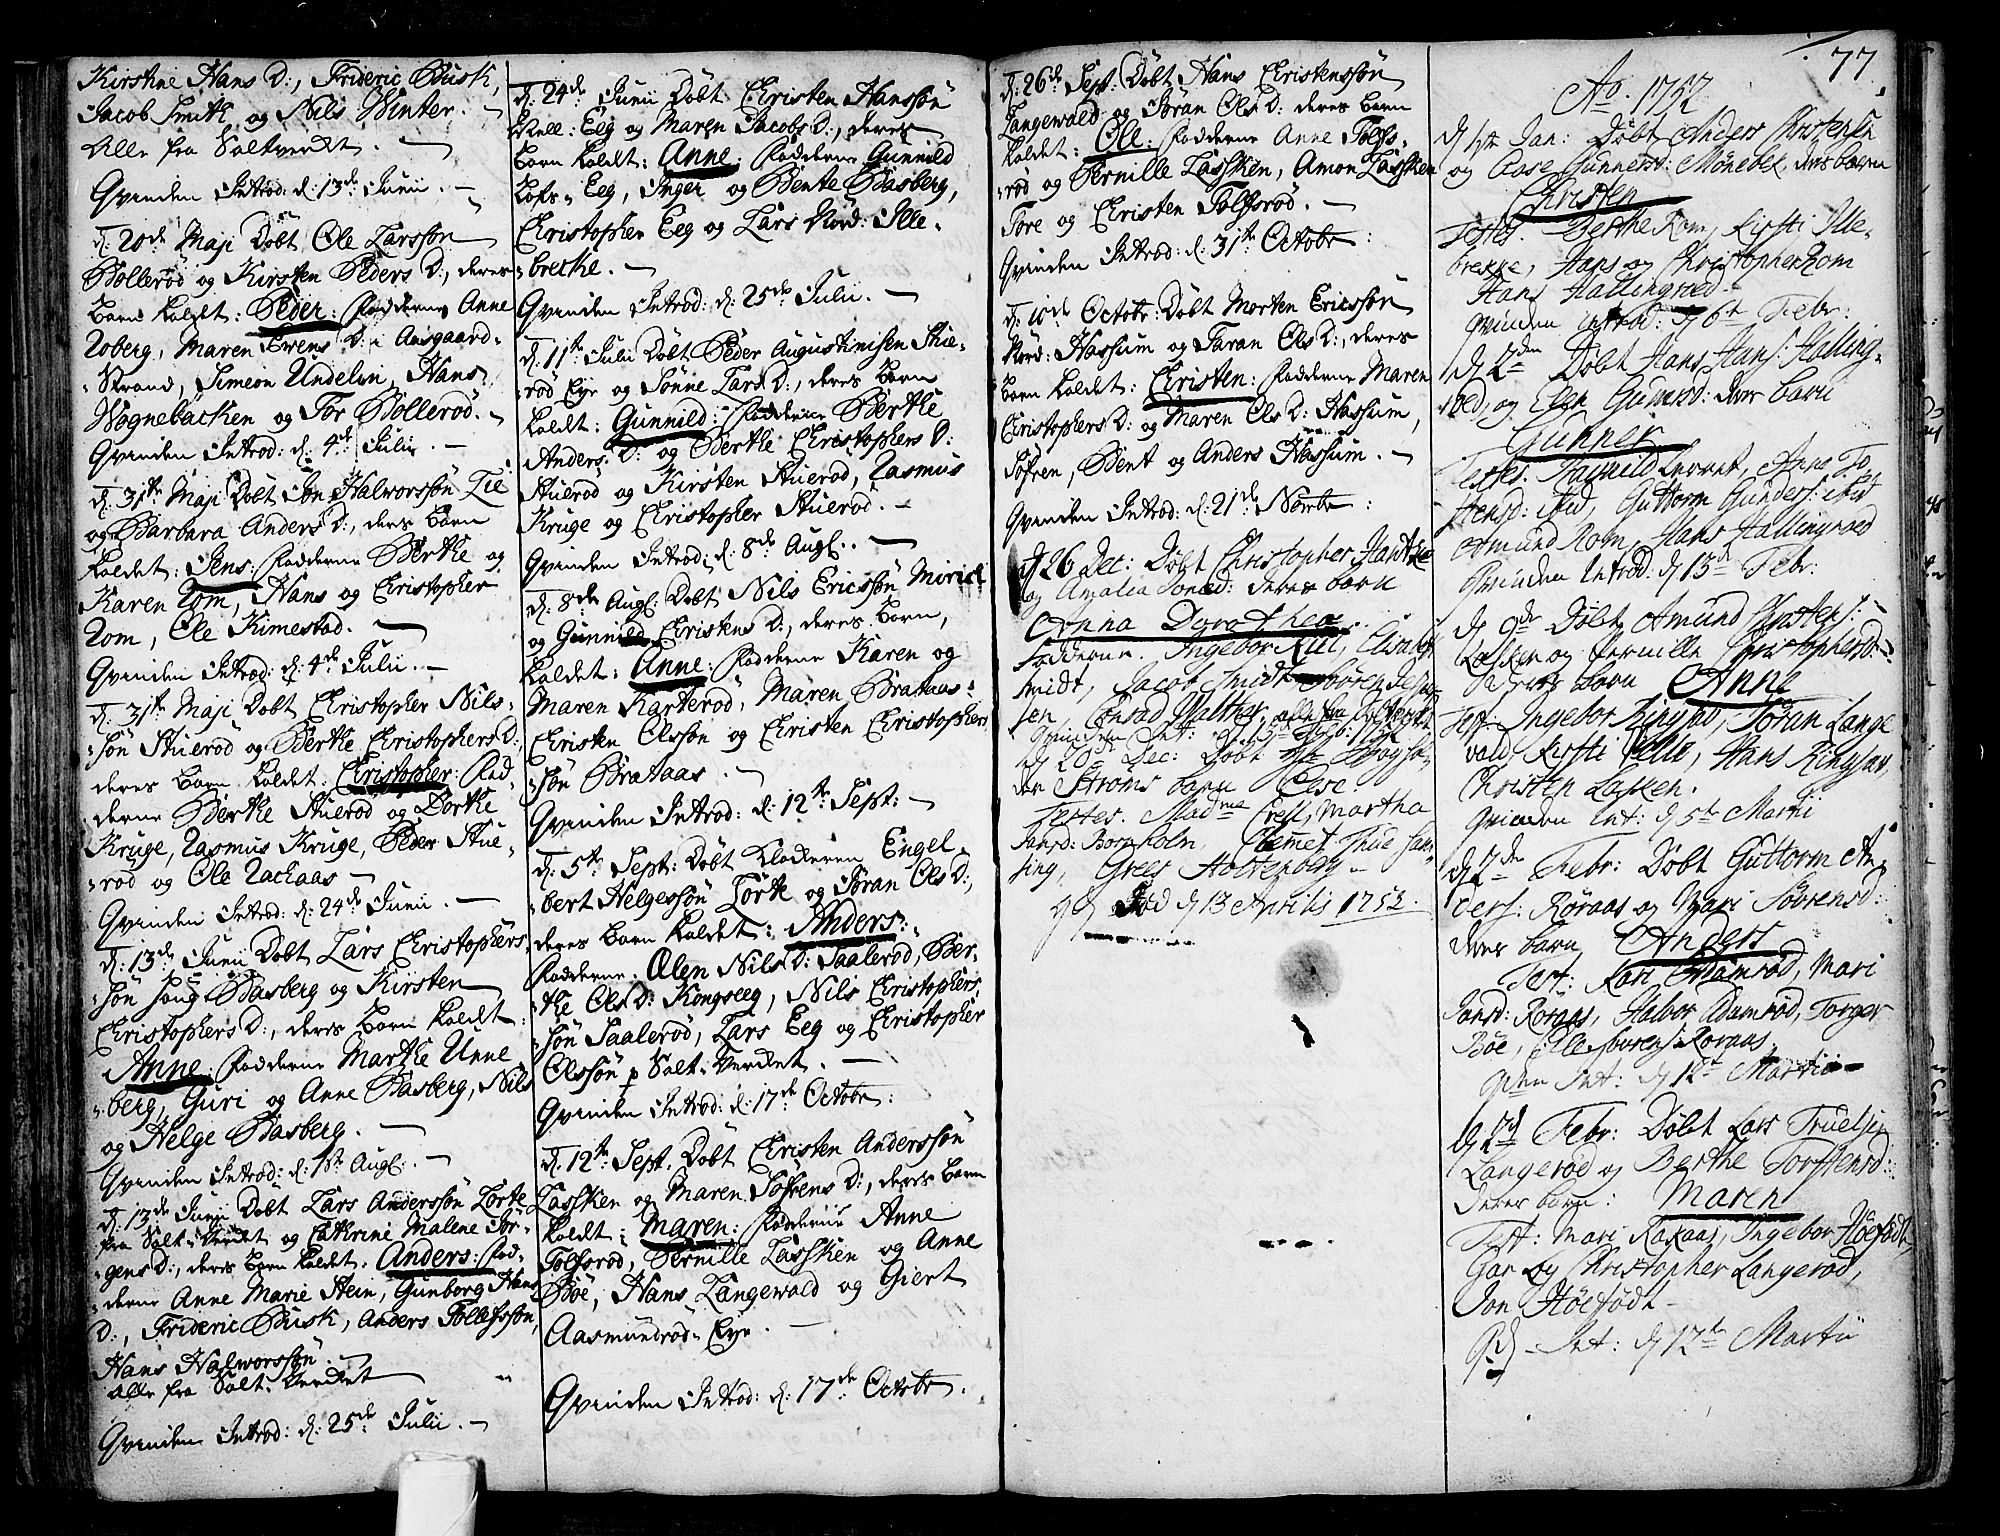 Kirstine Hans D:, Frideric Busk,
Jacob Smith og Nils Winter.
Alle fra Saltverket.
Qvinden Introd: d: 13de Junii.
d: 20de Maji Döbt Ole Larssön
Bolleröd og Kirsten Peders D:, deres
barn kaldet: Peder: Fadderne Anne
Roberg, Maren Iwens D: i Aasgaard-
Strand, Simeon Undelin, Hans
Wognebäcken og Tor Bolleröd.
Qvinden Introd: d: 4de Julii.
d: 31te Maji Döbt Jon Halworssön Lie
og Barbara Anders D:, deres barn
kaldet: Jens: Fadderne Berthe og
Karen Rom, Hans og Christopher
Rom, Ole Kimestad.
Qvinden Introd: d: 4de Julii.
d: 31te Maji Döbt Christopher Nils-
sön Stueröd og Berthe Christophers D:,
deres barn kaldet: Christopher: Fad-
derne Berthe Stueröd og Dorthe
Kruge, Rasmus Kruge, Peder Stue-
röd og Ole Rackaas
Qvinden Introd: d: 24de Junii.
d: 13de Junii Döbt Lars Christophers
sön Basberg og Kirsten
Christophers D:, deres barn kaldet:
Anne: Fadderne Marthe Unne
berg, Guri og Anne Basberg, Nils
og Helge Basberg.
Qvinden Introd: d: 1te Aug:.
d: 13de Junii Döbt Lars Anderssön Lorte
fra Salt-Verket og Cathrine Malene Jör-
gens D:, deres barn kaldet: Anders: Fad-
derne Anne Marie Stein, Gunborg Hans
D:, Frideric Busk, Anders Tollefssön,
Hans Halworssön.
alle fra Salt-Verket
Qvinden Introd: d: 25de Julii.
d: 24de Junii Döbt Christen Hanssön
Eeg og Maren Jacobs D:, deres
barn kaldet: Anne: Fadderne Gunnild
Lofs- Eeg, Inger og Bente Basberg,
Christopher Eeg og Lars Nord: Ille-
brecke.
Qvinden Introd: d: 25de Julii.
d: 11te Julii Döbt Peder Augustinisen Stue-
röd Eye og Tönne Lars D:, deres barn
kaldet: Gunnild: Fadderne Berthe
Anders D: og Berthe Christophers D:
Stueröd og Kirsten Stueröd, Rasmus
Kruge og Christopher Stueröd.
Qvinden Introd: d: 8de Aug:.
d: 8de Aug: Döbt Nils Ericssön
og Gunnild Christens D:, deres barn,
kaldet: Anne: Fadderne Karen og
Maren Karteröd, Maren Brataas
Christen Olssön og Christen Christophers
sön Brataas.
Qvinden Introd: d: 12te Sept:
d: 5te Sept: Döbt Klockeren Engel-
bert Helgessön Lorte og Jöran Ols D:,
deres barn kaldet: Anders:
Fadderne: Olen Nils D: Saaleröd, Ber-
the Ols D: Kongseeg, Nils Christophers
sön Saaleröd, Lars Eeg og Christopher
Olssön p Salt-Verket.
Qvinden Introd: d: 17de Octobr:
d: 12te Sept. Döbt Christen Anderssön
Lassken og Maren Söfrens D:, deres barn
kaldt: Maren: Fadderne Anne
Tolfsröd, Pernille Lassken og Anne
Böe, Hans Langewald og Giert
Aasmundröd-Eye.
Qvinden Introd: d: 17de Octobr.
d: 26de Sept: Döbt Hans Christenssön
Langewald og Jöran Ols D: deres barn
kaldet: Ole: Fadderne Anne Tolfs-
röd og Pernille Lassken, Amon Lassken
Tore og Christen Tolfsröd.
Qvinden Introd: d: 31te Octobr:
d: 10de Octobr: Döbt Morten Ericssön
Nord: Hassum og Taran Ols D:, deres
barn kaldet: Christen: Fadderne Maren
Christophers D: og Maren Ols D: Hassum,
Söfren, Bent og Anders Hassum.
Qvinden Introd: d: 21de Novbr:
d 26 Dec: Döbt Christopher
og Amalia deres barn
Anna Dorothea
Fadderne. Ingebor, Elisabeth
Smidt, Jacob Smidt, Sören
sen, Conrad Walther, alle fra
Qvinden Int:
d 20de Dec: Döbt
der Ströms barn Else.
Testes. Madme Crell, Martha
Jansd: Bornholm, Clemet Thue
sing, Grees Holtenberg
Fød d 13 Aprilis 1752.
77
Ao. 1752
d 1te Jan: Döbt Anders Christensen
og Aase Gunnersd: Mönebek, deres barn
Christen
Testes. Berthe Rom, Kirsti Ille-
brekke, Hans og Christopher Rom
Hans Hallingroed.
Qvinden introd: d 6te Febr:
d 2den Döbt Hans Hans: Halling-
roed, og Elen Gunersd: deres barn
Gunner
Testes. Raunild, Anne To-
stensd: Guttorm Gunders:
Amund Rom, Hans Hallingroed
Qvinden Introd: d 13de Febr:
d 9de Döbt Amund Christens:
Lasken og Pernille Christophersd:
deres barn Anne
Test. Ingebor Ringsav, Jöran Lange
vald, Kirsti, Hans Ringsav,
Christen Lasken.
Qvinden Int: d 5te Martii
d 2den Febr: Döbt Guttorm An-
ders: Röraas og Mari Sörensd:
deres barn Anders
Test: Kari Adamröd, Mari
Jansd: Röraas, Halvor Adamröd, Torger
Böe, Ole Sörens: Röraas.
Qven Int: d 12te Martii
d 2den Febr: Döbt Lars Truelsen
Langeröd og Berthe Torstensd:
deres barn: Maren
Test: Mari Rakaas, Ingebor Höesödt,
Gar og Christopher Langeröd,
Jon Höesödt
Int: d 12te Martii